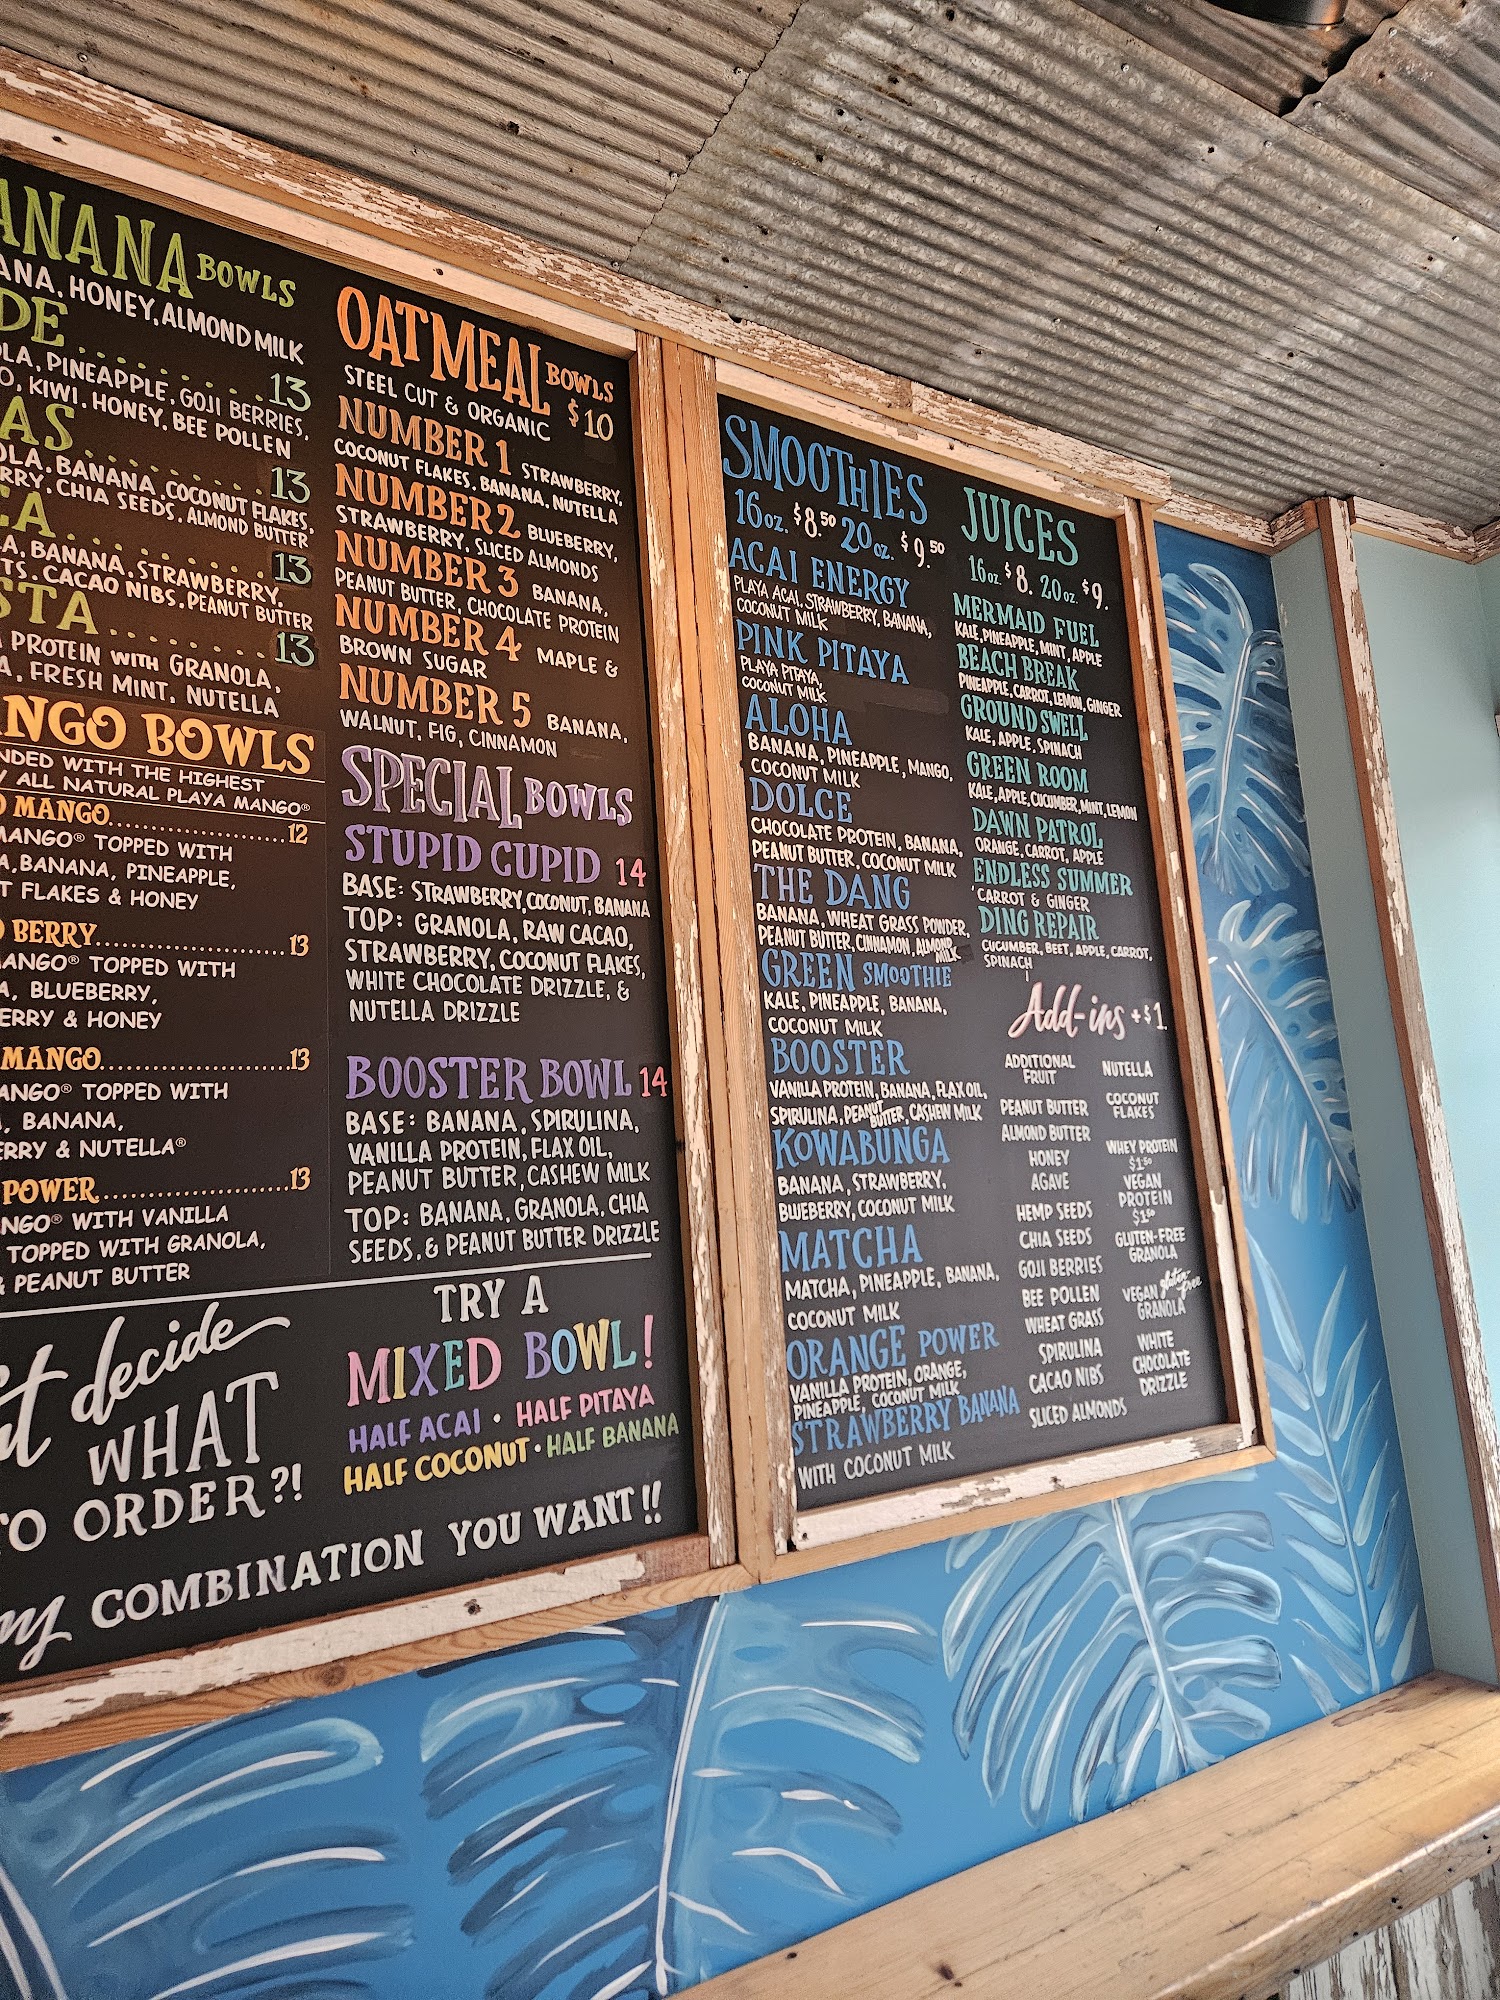 BOWLS
HONEY, ALMOND MILK
13
PINEAPPLE, GOJI BERRIES,
KIWI, HONEY, BEE POLLEN
13
BANANA, COCONUT FLAKES,
CHIA SEEDS, ALMOND BUTTER
13
BANANA, STRAWBERRY,
CACAO NIBS, PEANUT BUTTER
13
PROTEIN WITH GRANOLA,
FRESH MINT, NUTELLA
BOWLS
WITH THE HIGHEST
ALL NATURAL PLAYA MANGO®
MANGO 12
MANGO® TOPPED WITH
BANANA, PINEAPPLE,
FLAKES & HONEY
BERRY 13
MANGO® TOPPED WITH
BLUEBERRY,
& HONEY
MANGO 13
MANGO® TOPPED WITH
BANANA,
& NUTELLA®
POWER 13
WITH VANILLA
TOPPED WITH GRANOLA,
& PEANUT BUTTER
decide
WHAT
TO ORDER?!
OATMEAL BOWLS
STEEL CUT & ORGANIC $10
NUMBER 1 STRAWBERRY,
COCONUT FLAKES, BANANA, NUTELLA
NUMBER 2 BLUEBERRY,
STRAWBERRY, SLICED ALMONDS
NUMBER 3 BANANA,
PEANUT BUTTER, CHOCOLATE PROTEIN
NUMBER 4 MAPLE &
BROWN SUGAR
NUMBER 5 BANANA,
WALNUT, FIG, CINNAMON
SPECIAL BOWLS
STUPID CUPID 14
BASE: STRAWBERRY, COCONUT, BANANA
TOP: GRANOLA, RAW CACAO,
STRAWBERRY, COCONUT FLAKES,
WHITE CHOCOLATE DRIZZLE, &
NUTELLA DRIZZLE
BOOSTER BOWL 14
BASE: BANANA, SPIRULINA,
VANILLA PROTEIN, FLAX OIL,
PEANUT BUTTER, CASHEW MILK
TOP: BANANA, GRANOLA, CHIA
SEEDS, & PEANUT BUTTER DRIZZLE
TRY A
MIXED BOWL!
HALF ACAI • HALF PITAYA
HALF COCONUT • HALF BANANA
COMBINATION YOU WANT!!
SMOOTHIES
16oz. $8.50 20oz. $9.50
ACAI ENERGY
PLAYA ACAI, STRAWBERRY, BANANA,
COCONUT MILK
PINK PITAYA
PLAYA PITAYA,
COCONUT MILK
ALOHA
BANANA, PINEAPPLE, MANGO,
COCONUT MILK
DOLCE
CHOCOLATE PROTEIN, BANANA,
PEANUT BUTTER, COCONUT MILK
THE DANG
BANANA, WHEAT GRASS POWDER,
PEANUT BUTTER, CINNAMON, ALMOND MILK
GREEN SMOOTHIE
KALE, PINEAPPLE, BANANA,
COCONUT MILK
BOOSTER
VANILLA PROTEIN, BANANA, FLAX OIL,
SPIRULINA, PEANUT BUTTER, CASHEW MILK
KOWABUNGA
BANANA, STRAWBERRY,
BLUEBERRY, COCONUT MILK
MATCHA
MATCHA, PINEAPPLE, BANANA,
COCONUT MILK
ORANGE POWER
VANILLA PROTEIN, ORANGE,
PINEAPPLE, COCONUT MILK
STRAWBERRY BANANA
WITH COCONUT MILK
JUICES
16oz. $8. 20oz. $9.
MERMAID FUEL
KALE, PINEAPPLE, MINT, APPLE
BEACH BREAK
PINEAPPLE, CARROT, LEMON, GINGER
GROUND SWELL
KALE, APPLE, SPINACH
GREEN ROOM
KALE, APPLE, CUCUMBER, MINT, LEMON
DAWN PATROL
ORANGE, CARROT, APPLE
ENDLESS SUMMER
CARROT & GINGER
DING REPAIR
CUCUMBER, BEET, APPLE, CARROT,
SPINACH
Add-ins +$1.
ADDITIONAL
FRUIT
PEANUT BUTTER
ALMOND BUTTER
HONEY
AGAVE
HEMP SEEDS
CHIA SEEDS
GOJI BERRIES
BEE POLLEN
WHEAT GRASS
SPIRULINA
CACAO NIBS
SLICED ALMONDS
NUTELLA
COCONUT
FLAKES
WHEY PROTEIN
$1.50
VEGAN
PROTEIN
$1.50
GLUTEN-FREE
GRANOLA
VEGAN gluten-free
GRANOLA
WHITE
CHOCOLATE
DRIZZLE